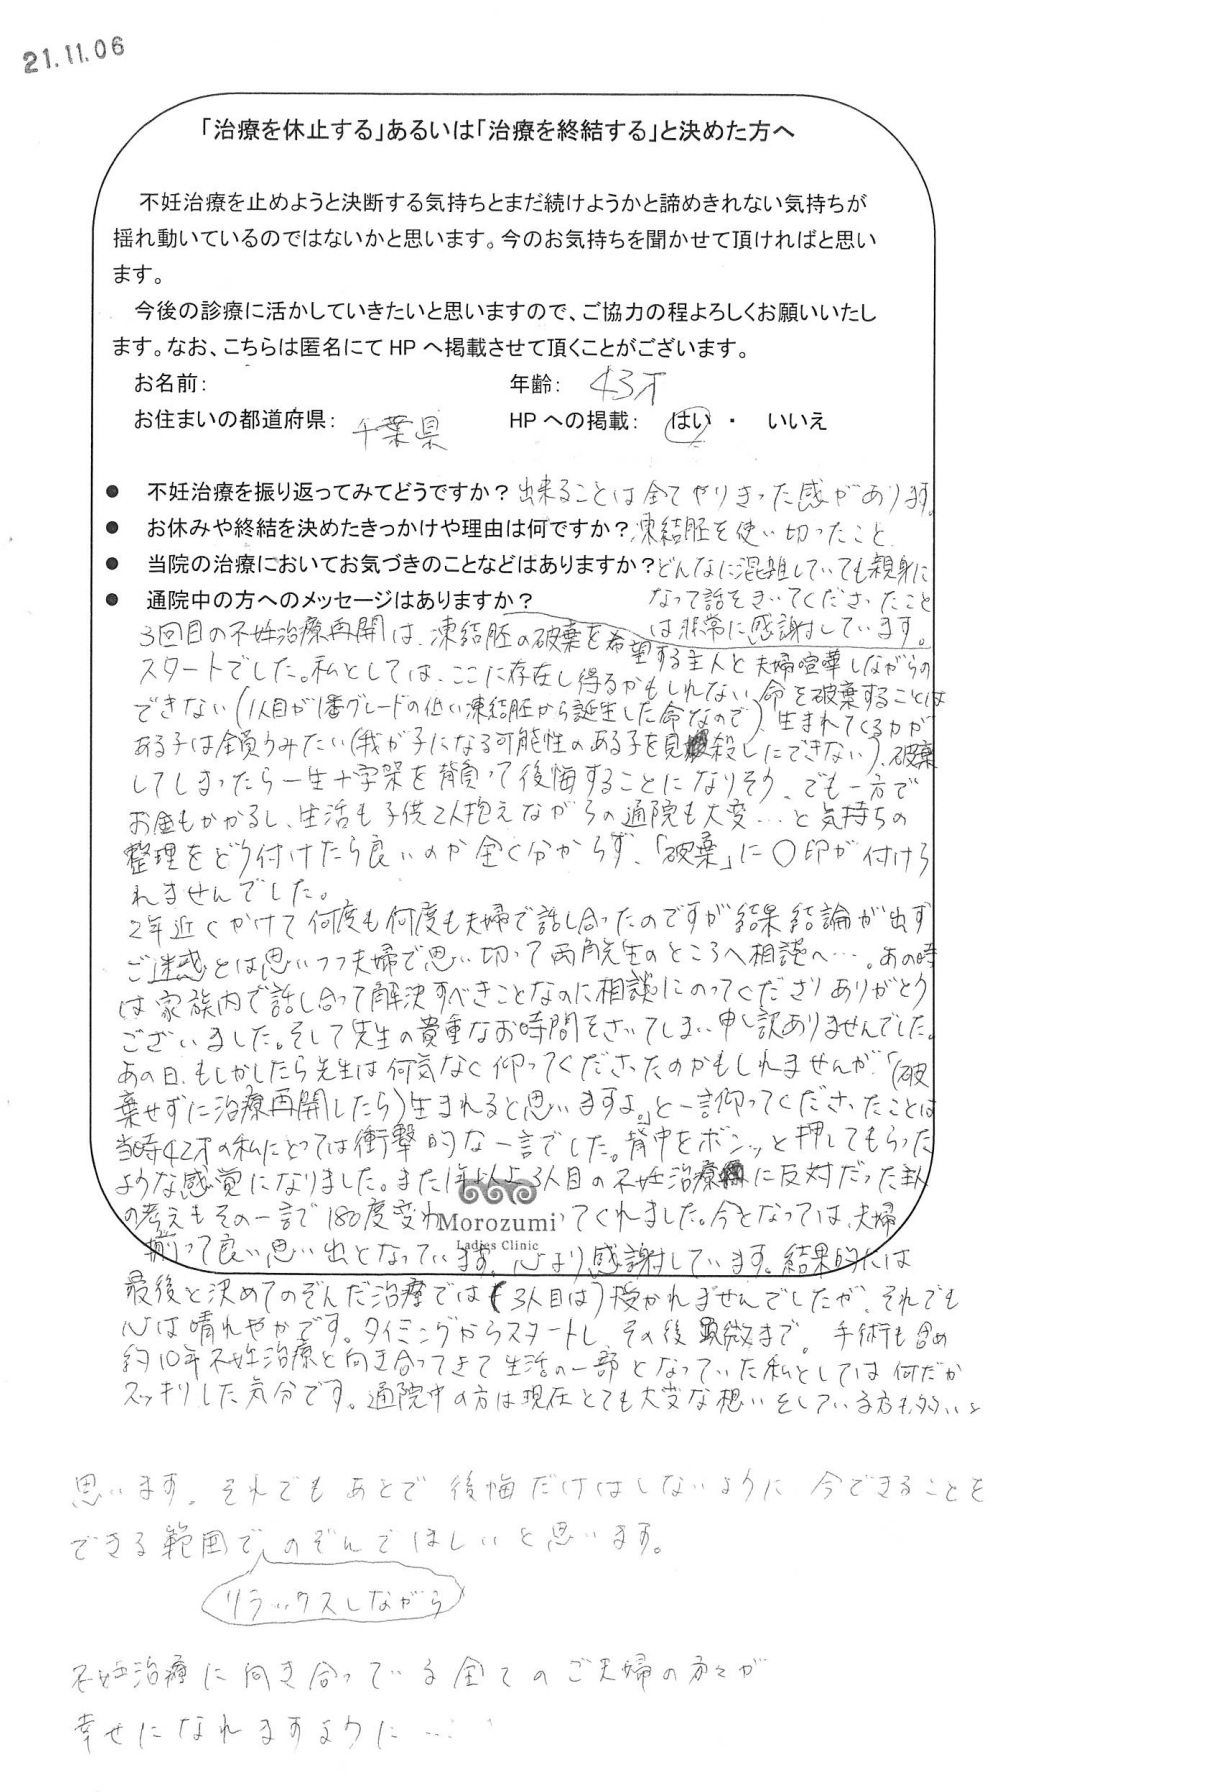 21.11.06
「治療を休止する」あるいは「治療を終結する」と決めた方へ
不妊治療を止めようと決断する気持ちとまだ続けようかと諦めきれない気持ちが
揺れ動いているのではないかと思います。今のお気持ちを聞かせて頂ければと思い
ます。
今後の診療に活かしていきたいと思いますので、ご協力の程よろしくお願いいたし
ます。なお、こちらは匿名にて HP へ掲載させて頂くことがございます。
お名前: 年齢: 43才
お住まいの都道府県: 千葉県 HP への掲載: はい ・ いいえ
● 不妊治療を振り返ってみてどうですか？出来ることは全てやりきった感があります。
● お休みや終結を決めたきっかけや理由は何ですか？凍結胚を使い切ったこと
● 当院の治療においてお気づきのことなどはありますか？どんなに混雑していても親身に
なって話をきいてくださったこと
は非常に感謝しています。
● 通院中の方へのメッセージはありますか？
3回目の不妊治療再開は、凍結胚の破棄を希望する主人と夫婦喧嘩しながらの
スタートでした。私としては、ここに存在し得るかもしれない命を破棄することは
できない(1人目が1番グレードの低い凍結胚から誕生した命なので)、生まれてくる力が
ある子は全員うみたい(我が子になる可能性のある子を見殺しにできない)、破棄
してしまったら一生十字架を背負って後悔することになりそう、でも一方で
お金もかかるし、生活も子供2人抱えながらの通院も大変…と気持ちの
整理をどう付けたら良いのか全く分からず、「破棄」に〇印が付けら
れませんでした。
2年近くかけて何度も何度も夫婦で話し合ったのですが結果結論が出ず
ご迷惑とは思いつつ夫婦で思い切って両角先生のところへ相談へ…。あの時
は家族内で話し合って解決すべきことなのに相談にのってくださりありがとう
ございました。そして先生の貴重なお時間をさいてしまい申し訳ありませんでした。
あの日、もしかしたら先生は何気なく仰ってくださったのかもしれませんが「(破
棄せずに治療再開したら)生まれると思いますよ。」と一言仰ってくださったことは
当時42才の私にとっては衝撃的な一言でした。背中をポンッと押してもらった
ような感覚になりました。また1年以上3人目の不妊治療に反対だった主人
の考えもその一言で180度変わってくれました。今となっては、夫婦
揃って良い思い出となっています。心より感謝しています。結果的には
Morozumi
Ladies Clinic
最後と決めてのぞんだ治療では(3人目は)授かれませんでしたが、それでも
心は晴れやかです。タイミングからスタートし、その後顕微まで。手術も含め
約10年不妊治療と向き合ってきて生活の一部となっていた私としては何だか
スッキリした気分です。通院中の方は現在とても大変な想いをしている方も多いと
思います。それでもあとで後悔だけはしないように今できることを
できる範囲でのぞんでほしいと思います。
リラックスしながら
不妊治療に向き合っている全てのご夫婦の方々が
幸せになれますように…